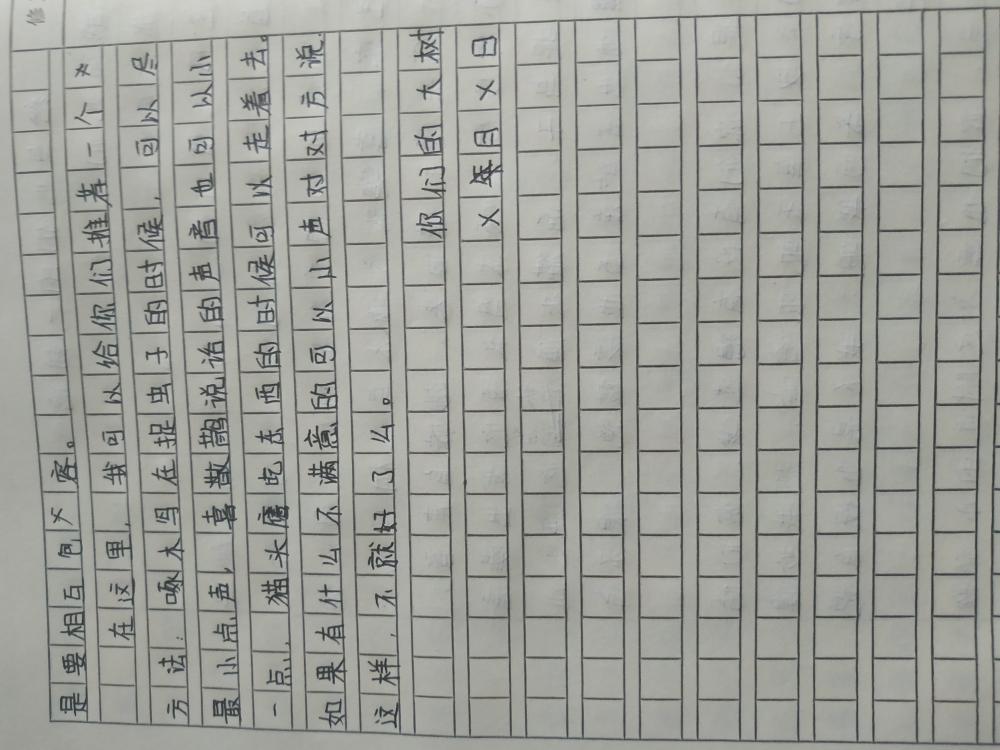 修
是要相互包X容。
在这里，我可以给你们推荐一个X
方法：啄木鸟在捉虫子的时候，可以尽
最小点声，喜散鹊说话的声音也可以小
一点，猫头鹰吃东西的时候可以走着去。
如果有什么不满意的可以小声对对方说.
这样，不就好了么。
你们的大树
X年日X日